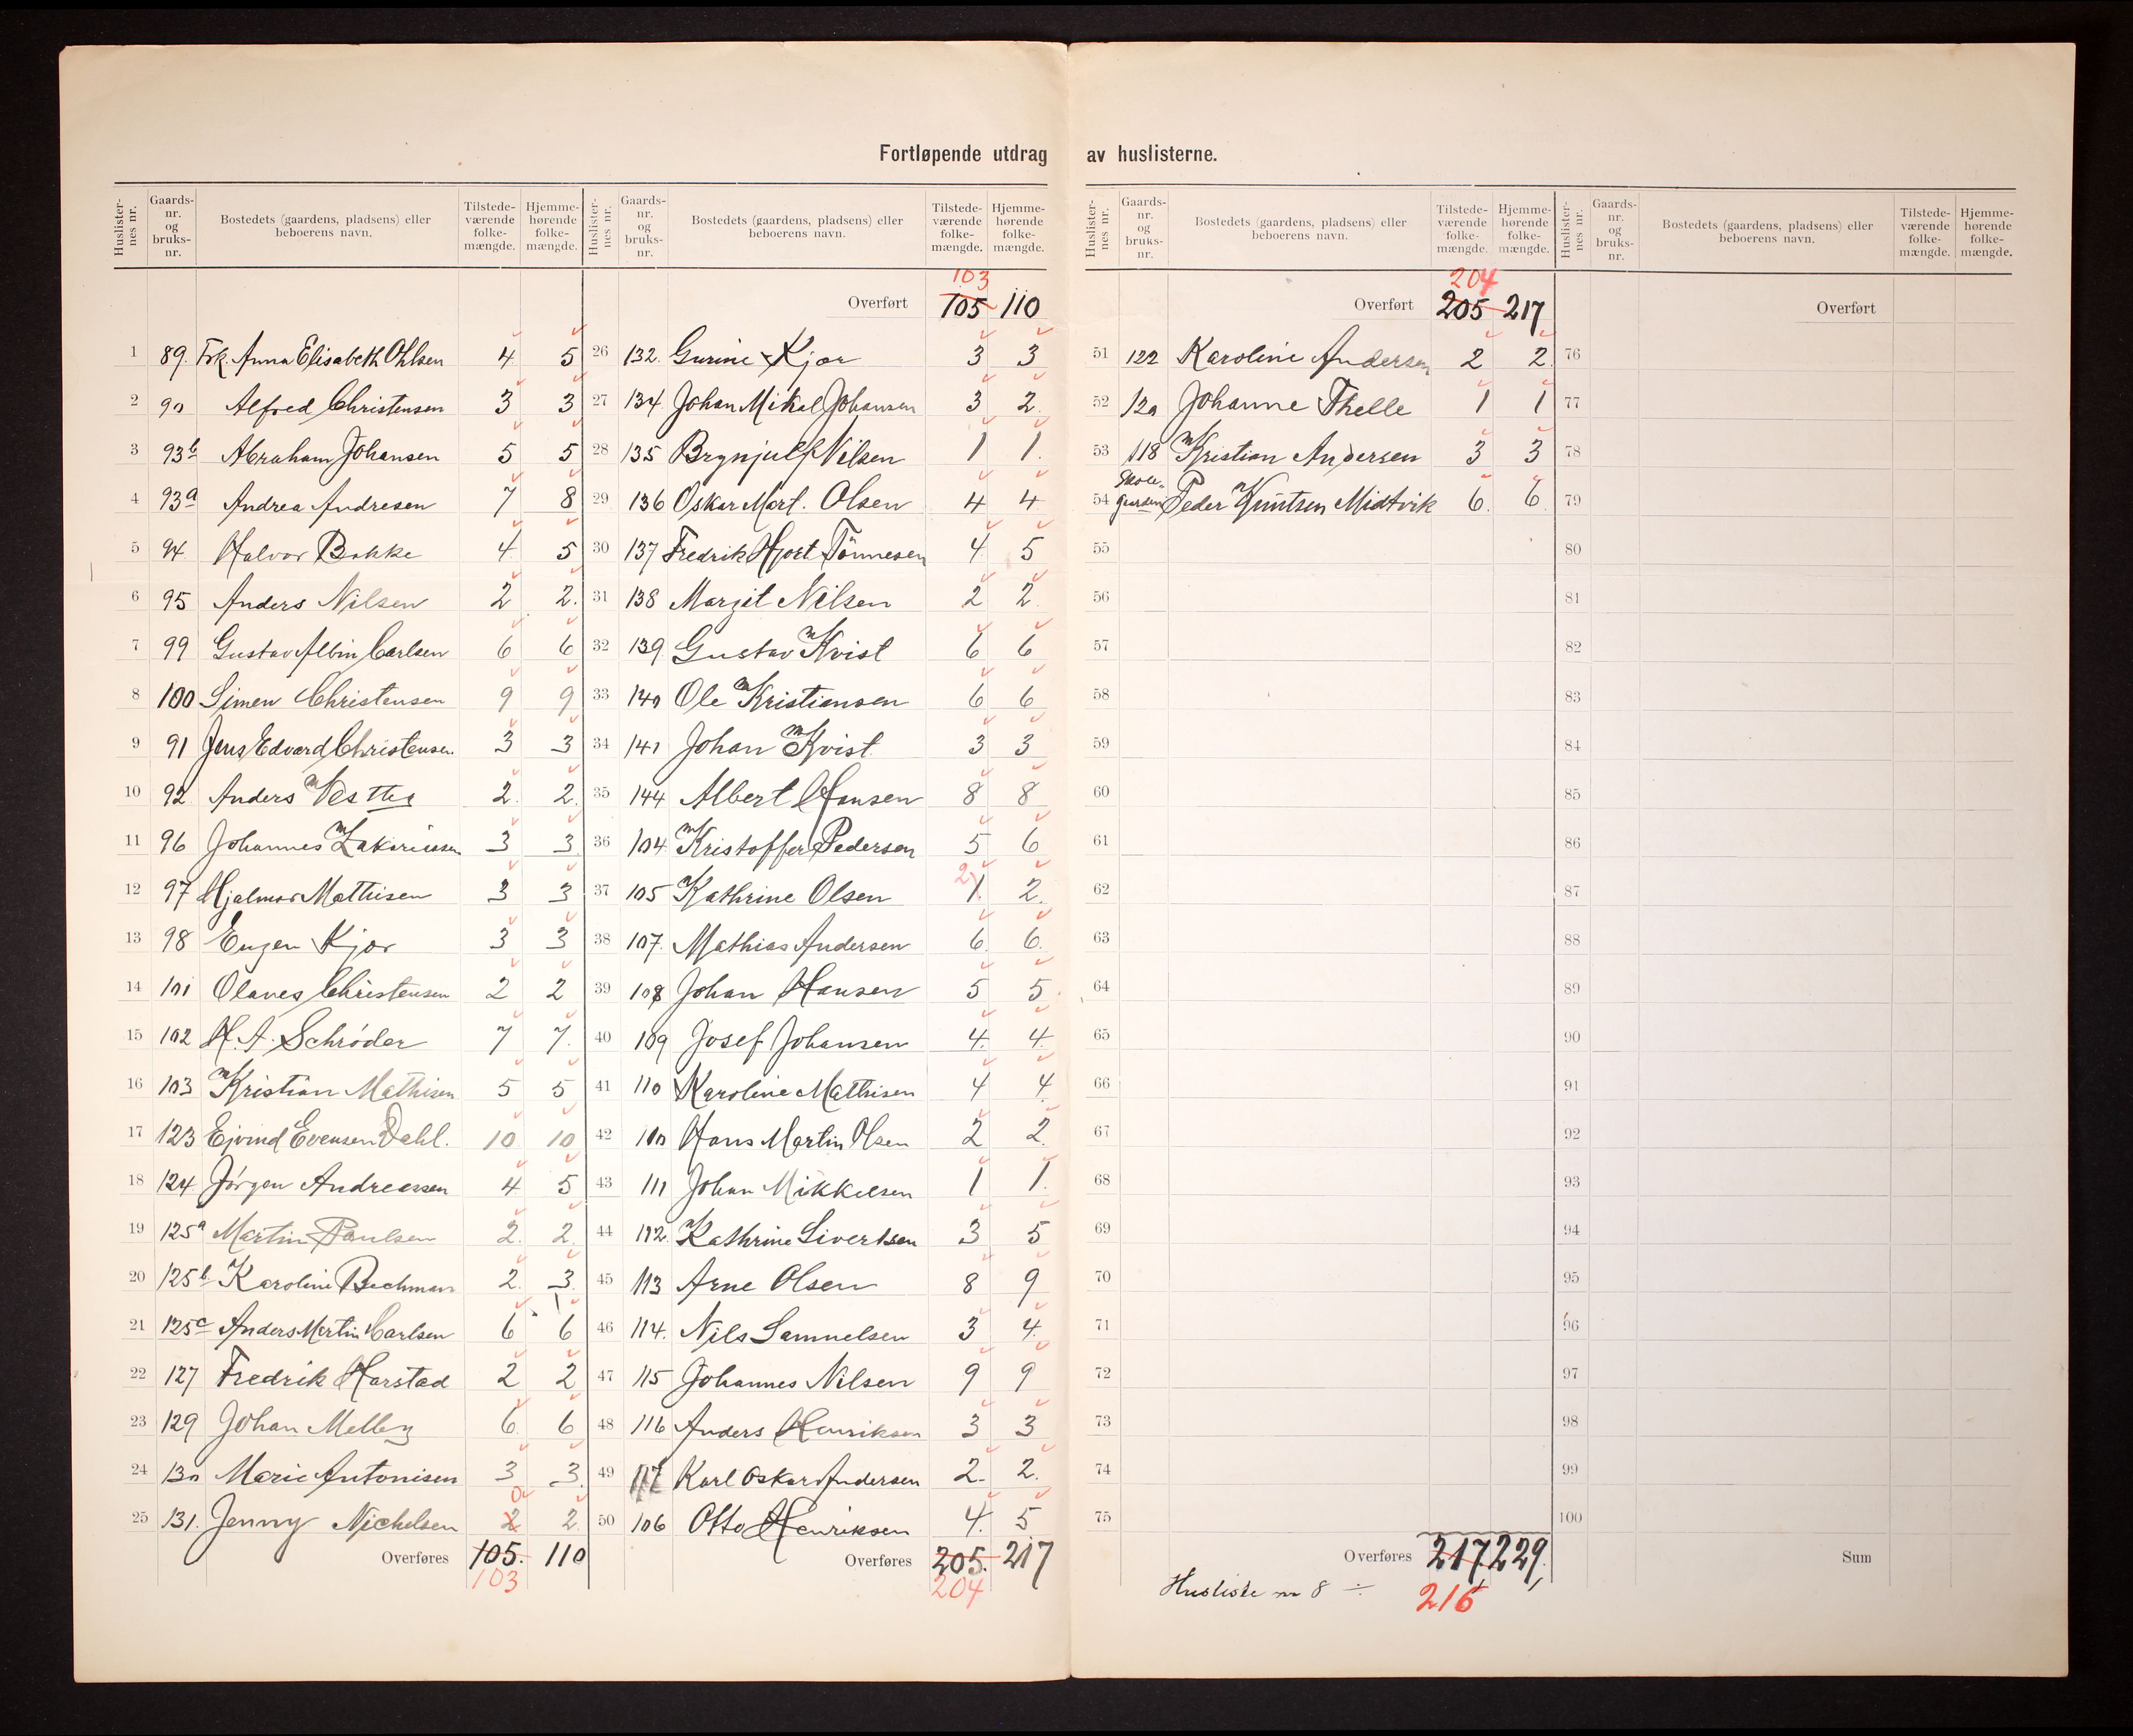 Fortløpende utdrag av huslisterne.
Huslister-nes nr. Gaards-nr. og bruks-nr. Bostedets (gaardens, pladsens) eller beboerens navn. Tilstede-værende folke-mængde. Hjemme-hørende folke-mængde.
1 89. Frk. Anna Elisabeth Ohlsen 4 5
2 90 Alfred Christensen 3 3
3 93b Abraham Johansen 5 5
4 93a Andrea Andresen 7 8
5 94 Halvor Bakke 4 5
6 95 Anders Nilsen 2 2.
7 99 Gustav Albin Carlsen 6 6
8 100 Simen Christensen 9 9
9 91 Jens Edvard Christensen 3 3
10 92 Anders 2. 2.
11 96 Johannes Zakariassen 3 3
12 97 Hjalmar Mathisen 3 3
13 98 Eugen Kjær 3 3
14 101 Olaves Christensen 2 2
15 102 H. A. Schrøder 7 7.
16 103 Kristian Mathisen 5 5
17 123 Ejvind Evensen Dahl. 10 10
18 124 Jørgen Andreassen 4 5
19 125a Martin Paulsen 2. 2.
20 125b Karoline Bechman 2. 3.
21 125c Anders Martin Carlsen 6 6
22 127 Fredrik Harstad 2 2
23 129 Johan Melby 6. 6
24 130 Marie Antonisen 3 3.
25 131. Jenny Nichelsen 2 0 2
Overføres 105. 110
103
Huslister-nes nr. Gaards-nr. og bruks-nr. Bostedets (gaardens, pladsens) eller beboerens navn. Tilstede-værende folke-mængde. Hjemme-hørende folke-mængde.
103
Overført 105 110
26 132. Gurine Kjær 3 3
27 134. Johan Mikal Johansen 3 2.
28 135 Brynjulf Nilsen 1 1.
29 136 Oskar Mart. Olsen 4 4
30 137 Fredrik Hjort Tønnesen 4. 5
31 138 Margit Nilsen 2 2.
32 139 Gustav Kvist 6 6
33 140 Ole Kristiansen 6 6
34 141 Johan Kvist 3 3
35 144 Albert Hansen 8 8
36 104 Kristoffer Pedersen 5 6
37 105 Kathrine Olsen 2 1. 2.
38 107. Mathias Andersen 6. 6.
39 108 Johan Hansen 5 5
40 109 Josef Johansen 4. 4.
41 110 Karoline Mathisen 4 4.
42 110 Hans Martin Olsen 2 2.
43 111 Johan Mikkelsen 1 1.
44 112. Kathrine Sivertsen 3 5
45 113 Arne Olsen 8 9
46 114. Nils Samuelsen 3 4.
47 115 Johannes Nilsen 9 9
48 116 Anders Henriksen 3 3
49 117 Karl Oskar Andersen 2. 2.
50 106 Otto Henriksen 4. 5
Overføres 205. 217
204
Huslister-nes nr. Gaards-nr. og bruks-nr. Bostedets (gaardens, pladsens) eller beboerens navn. Tilstede-værende folke-mængde. Hjemme-hørende folke-mængde.
204
Overført 205 217
51 122 Karoline Andersen 2 2.
52 120 Johanne Thelle 1 1
53 118 Kristian Andersen 3 3
54 Skole- Peder Knutsen Midtvik 6. 6.
55
56
57
58
59
60
61
62
63
64
65
66
67
68
69
70
71
72
73
74
75
Overføres 217, 229,
Husliste nr 8 ÷ 216
Huslister-nes nr. Gaards-nr. og bruks-nr. Bostedets (gaardens, pladsens) eller beboerens navn. Tilstede-værende folke-mængde. Hjemme-hørende folke-mængde.
Overført
76
77
78
79
80
81
82
83
84
85
86
87
88
89
90
91
92
93
94
95
96
97
98
99
100
Sum